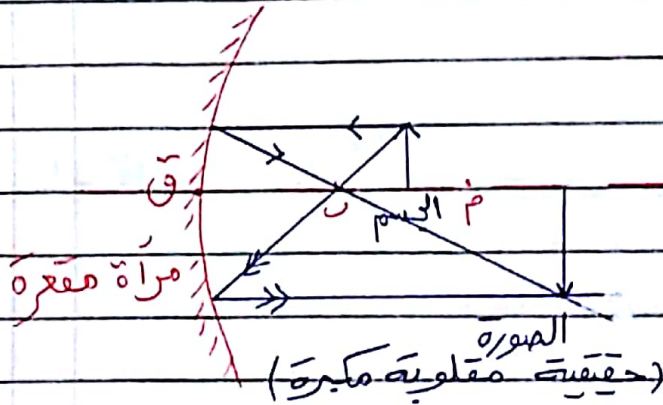 قَ
ب
الجسم
مَ
مرآة مقعرة
الصورة
(حقيقية مقلوبة مكبرة)